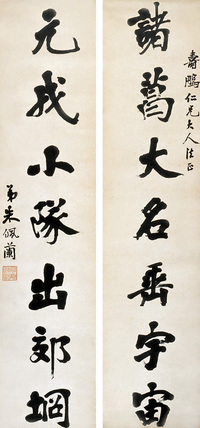 壽鵬仁兄大人法正
諸葛大名垂宇宙
元戎小隊出郊坰
弟朱佩蘭